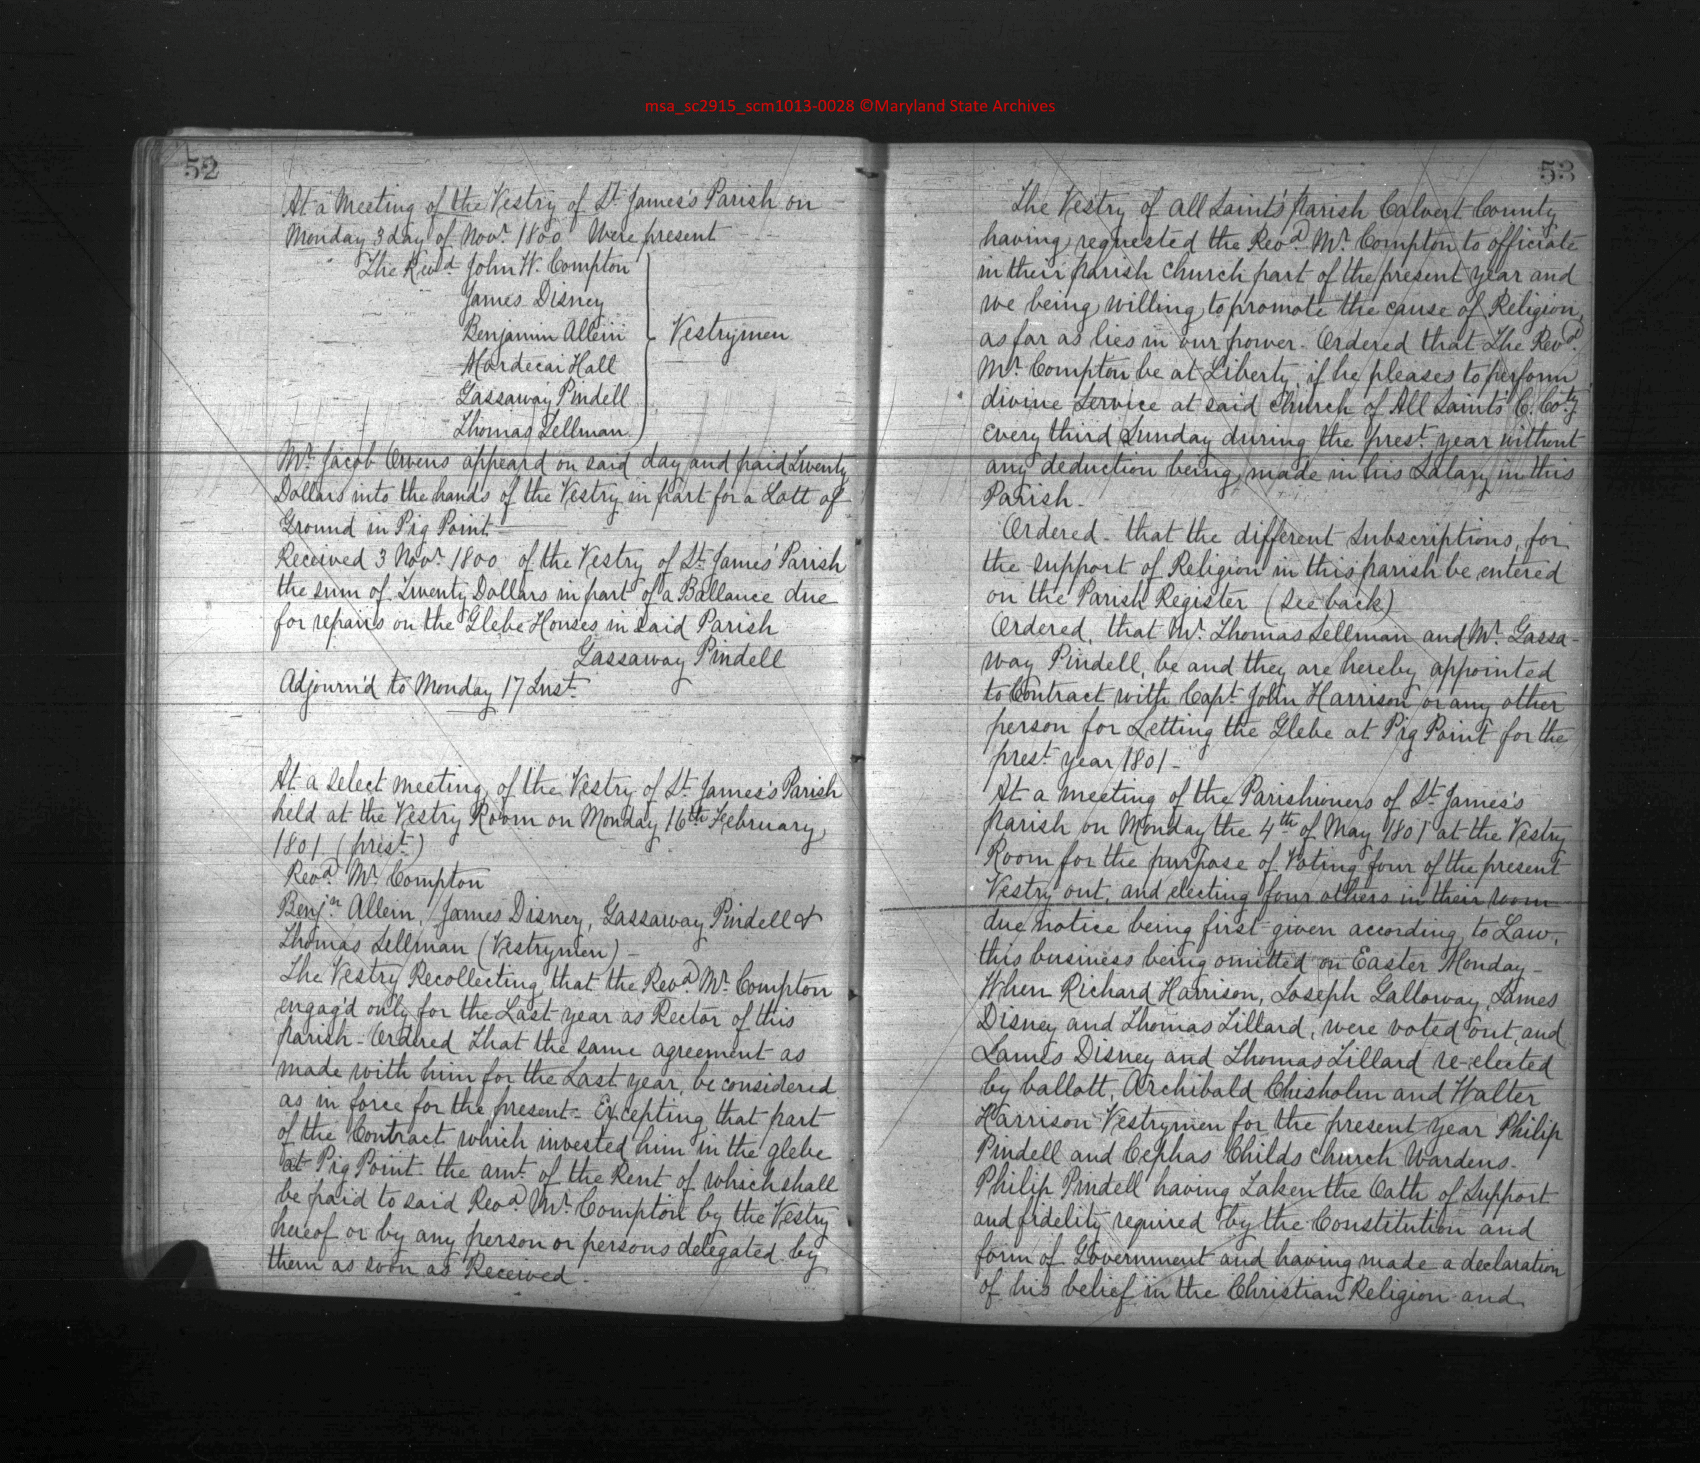 msa_sc2915_scm1013-0028 ©Maryland State Archives
52
At a Meeting of the Vestry of St. James's Parish on
Monday 3 day of Novr. 1800 Were present
The Revd. John W. Compton
James Disney
Benjamin Allein
Vestrymen
Mordecai Hall
Gassaway Pindell
Thomas Sellman
Mr. Jacob Owens appeard on said day and paid Twenty
Dollars into the hands of the Vestry in part for a Lott of
Ground in Pig Point
Received 3 Novr. 1800 of the Vestry of St. James' Parish
the sum of Twenty Dollars in part of a Ballance due
for repairs on the Glebe Houses in said Parish
Gassaway Pindell
Adjourn'd to Monday 17 Inst.
At a select meeting of the Vestry of St. James's Parish
held at the Vestry Room on Monday 16th February
1801 (prest.)
Revd. Mr. Compton
Benjn Allein, James Disney, Gassaway Pindell &
Thomas Sellman (Vestrymen) -
The Vestry Recollecting that the Revd. Mr. Compton
engag'd only for the Last year as Rector of this
parish - Ordered That the same agreement as
made with him for the Last year, be considered
as in force for the present - Excepting that part
of the Contract which invested him in the glebe
at Pig Point the amt. of the Rent of which shall
be paid to said Revd. Mr. Compton by the Vestry
hereof or by any person or persons delegated by
them as soon as Received -
53
The Vestry of All Saints' Parish Calvert County
having requested the Revd. Mr. Compton to officiate
in their parish church part of the present year and
we being willing to promote the cause of Religion,
as far as lies in our power - Ordered that The Revd.
Mr. Compton be at Liberty, if he pleases to perform
divine Service at said Church of All Saints' C. Coty.
every third Sunday during the prest. year without
any deduction being made in his Salary in this
Parish -
Ordered - that the different subscriptions, for
the support of Religion in this parish be entered
on the Parish Register (see back)
Ordered, that Mr. Thomas Sellman and Mr. Gassa-
way Pindell, be and they are hereby appointed
to Contract with Capt. John Harrison or any other
person for Letting the Glebe at Pig Point for the
prest. year 1801 -
At a meeting of the Parishioners of St. James's
parish on Monday the 4th of May 1801 at the Vestry
Room for the purpose of Voting four of the present
Vestry out, and electing four others in their room
due notice being first given according to Law,
this business being omitted on Easter Monday -
When Richard Harrison, Joseph Galloway, James
Disney and Thomas Tillard, were voted out, and
James Disney and Thomas Tillard re-elected
by ballott, Archibald Chisholm and Walter
Harrison Vestrymen for the present year Philip
Pindell and Cephas Childs Church Wardens -
Philip Pindell having Taken the Oath of Support
and fidelity required by the Constitution and
form of Government and having made a declaration
of his belief in the Christian Religion and